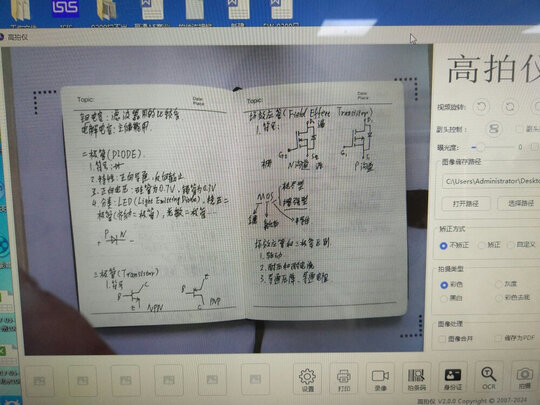 ISIS
高拍仪
高拍仪
视频旋转:
副头控制:
曝光度:
0
图像储存路径
C:\Users\Administrator\Deskto
打开路径
选择路径
矫正方式
不矫正
矫正
自定义
拍摄类型
彩色
灰度
黑白
彩色去底
图像处理
图像合并
储存为PDF
Topic:
Date:
Place
钽电容:滤波器用的比较多
电解电容:
二极管(DIODE).
1.符号:
2.特性:正向导通,反向截止
3.正向电压:硅管为0.7V,锗管为0.3V
4.分类:LED(Light Emitting Diode),稳压二
极管
P
N
三极管(Transistor)
1.符号
B
C
e
NPN
B
C
e
PNP
Topic:
Date:
Place
场效应管(Field Effect Transistor)
1.符号:
G
N沟道
G
P沟道
MOS
增强型
半导体
场效应管和三极管区别.
1.驱动
2.耐压和耐电流
3.导通压降,导通电阻
设置
打印
录像
拍条码
身份证
OCR
拍摄
高拍仪 V2.0.0 Copyright © 2007-2024